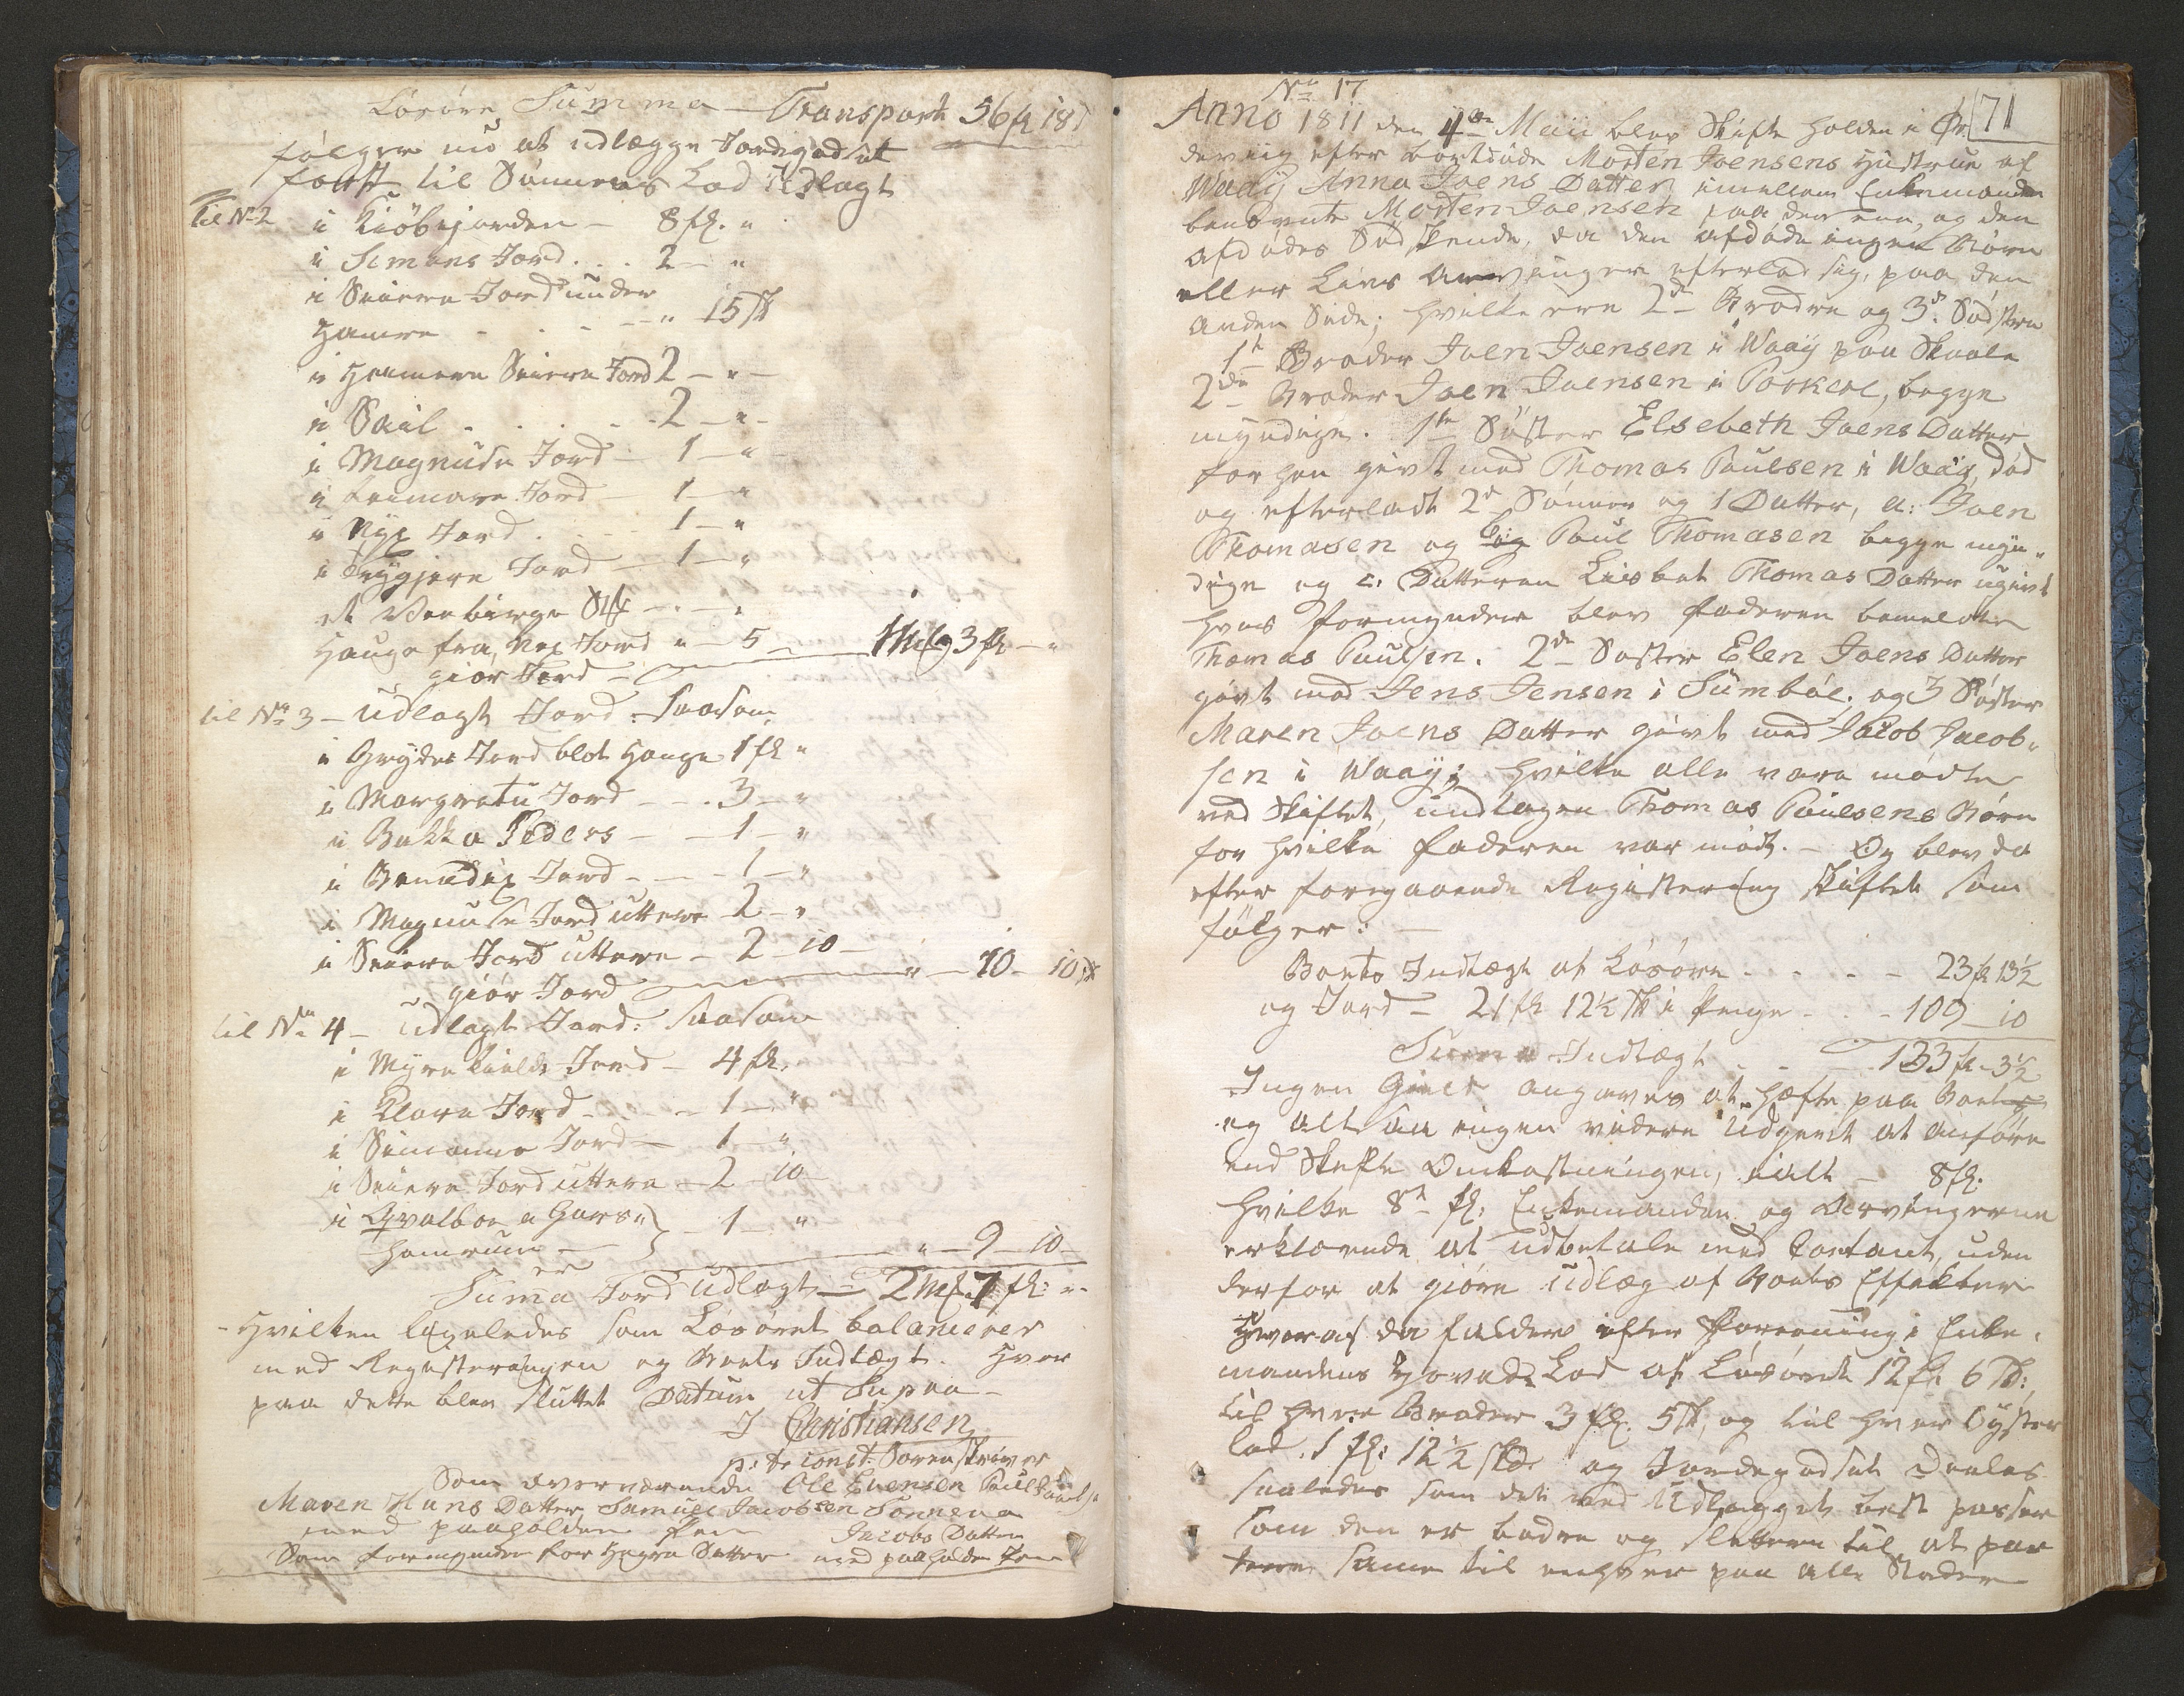 Løsøre Summa — Transport 56 fl 18
følger nu at udlægge Jordegodset
først til Sønnens Lod Udlagt
til No 2 i Kiöbejorden — 8 fl. "
i Simans Jord . . . 2 — "
i Sniern Jord under
Hamre . . . — " 15 sk
i Heimern Sniern Jord 2 — " —
i Sail . . . . . 2 — " —
i Magnuse Jord — 1 — "
i Jord — 1 — "
i Nyx Jord . . . 1 — "
i Jord — 1 — "
et
Hauge fra Nex Jord " — 5 — 1 Mk 3 fl — "
giör Jord —
til No 3 — Udlagt Jord: saasom
i Grydes Jord blot Hauge 1 fl "
i Margretu Jord — . 3 — "
i Bakka Peders — — 1 — "
i Benedix Jord — — 1 — "
i Magnuse Jord uttere 2 — "
i Sniern Jord uttere — 2 — 10 —
giör Jord — " — 10 — 10 sk
til No 4 — udlagt Jord: saasom
i Myrekields Jord — 4 fl.
i Klara Jord — . . — 1 — "
i Simans Jord — 1 — "
i Sniern Jord uttere — 2 — 10 —
i Qvalboe a Gars " } — 1 — "
hamrum — " — 9 — 10 —
er
Suma Jord udlagt — 2 Mk 7 fl: " —
— Hvilken ligeledes som Løsöret balancerer
med Registeringen og Boets Indtægt. Hver
paa dette blev sluttet Datum ut Supra —
J Christiansen
p: t: const: Sorenskriver
Som overværende Ole Evensen Poul
Maren Hans Datter Samuel Jacobsen Sonneva
med paaholden Pen Jacobs Datter
Som formynder for Datter med paaholden Pen
No 17
71
Anno 1811 den 4de Maii blev Skifte holden i
deviig efter bortdöde Morten Joensens Hustrue af
Waaÿ Anna Joens Datter, imellem Enkemanden
benævnte Morten Joensen paa den ene, og den
afdödes Södskende, da den afdöde ingen Börn
eller Livs Arvinger efterlod sig, paa den
anden Side; hvilke ere 2de Brödre og 3de Södstre
1te Broder Joen Joensen i Waaÿ paa Skaale
2den Broder Joen Joensen i Porkere, begge
myndige. 1te Söster Elsebeth Joens Datter
for hen givt med Thomas Paulsen i Waaÿ, död
og efterladt 2de Sönner og 1 Datter, a: Joen
Thomasen og b: Paul Thomasen begge myn„
dige og c: Datteren Lisbet Thomas Datter ugivt
hvis Formynder blev Faderen bemeldte
Thomas Paulsen. 2den Söster Elen Joens Datter
givt med Jens Jensen i Sümböe. og 3 Söster
Maren Joens Datter givt med Jacob Jacob„
sen i Waaÿ; hvilke alle vare mödte
ved Skiftet, undtagen Thomas Paulsens Börn
for hvilke Faderen var mödt. — Og blev da
efter foregaaende Registering skiftet som
fölger: —
Boets Indtægt af Løsöre . . . . — 23 fl 13½
og Jord — 21 fl 12½ sk i Penge — . . — 109 — 10
Suma Indtægt . . . 133 fl — 3½
Ingen Gield angaves at hæfte paa Boet
og altsaa ingen videre Udgivt at anföre
end Skifte Omkostningen, ialt — 8 fl.
Hvilke 8te fl: Enkemanden og Arvingerne
erklærede at udbetale med Contant, uden
derfor at giöre Udlæg af Boets Effekter
Hvoraf da falder efter Forening i Enke„
mandens Hoved Lod af Løsöret 12 fl 6 sk:
til hver Broder 3 fl. 5 sk, og til hver Syster
lod 1 fl: 12½ sk og Jordegodset deeles
saaledes som det ved Udlægget best passer
som den er bedre og slettere til at par
tere same til enhver paa alle Steder